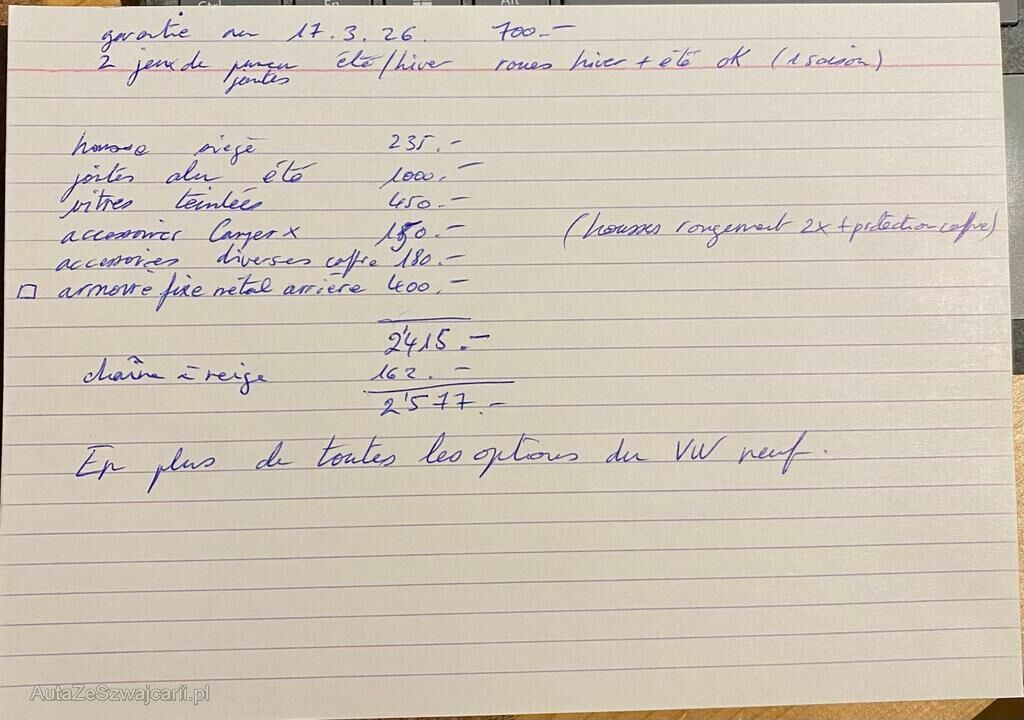 garantie au 17.3.26. 700.-
2 jeux de pneu été/hiver roues hiver + été ok (1 saison)
jantes
housse siège 235.-
jantes alu été 1000.-
vitres teintées 450.-
accessoires 150.- (housses rangement 2x + protection coffre)
accessoires diverses coffre 180.-
armoire fixe métal arrière 400.-
2'415.-
chaîne à neige 162.-
2'577.-
En plus de toutes les options du VW neuf.
AutaZeSzwajcarii.pl